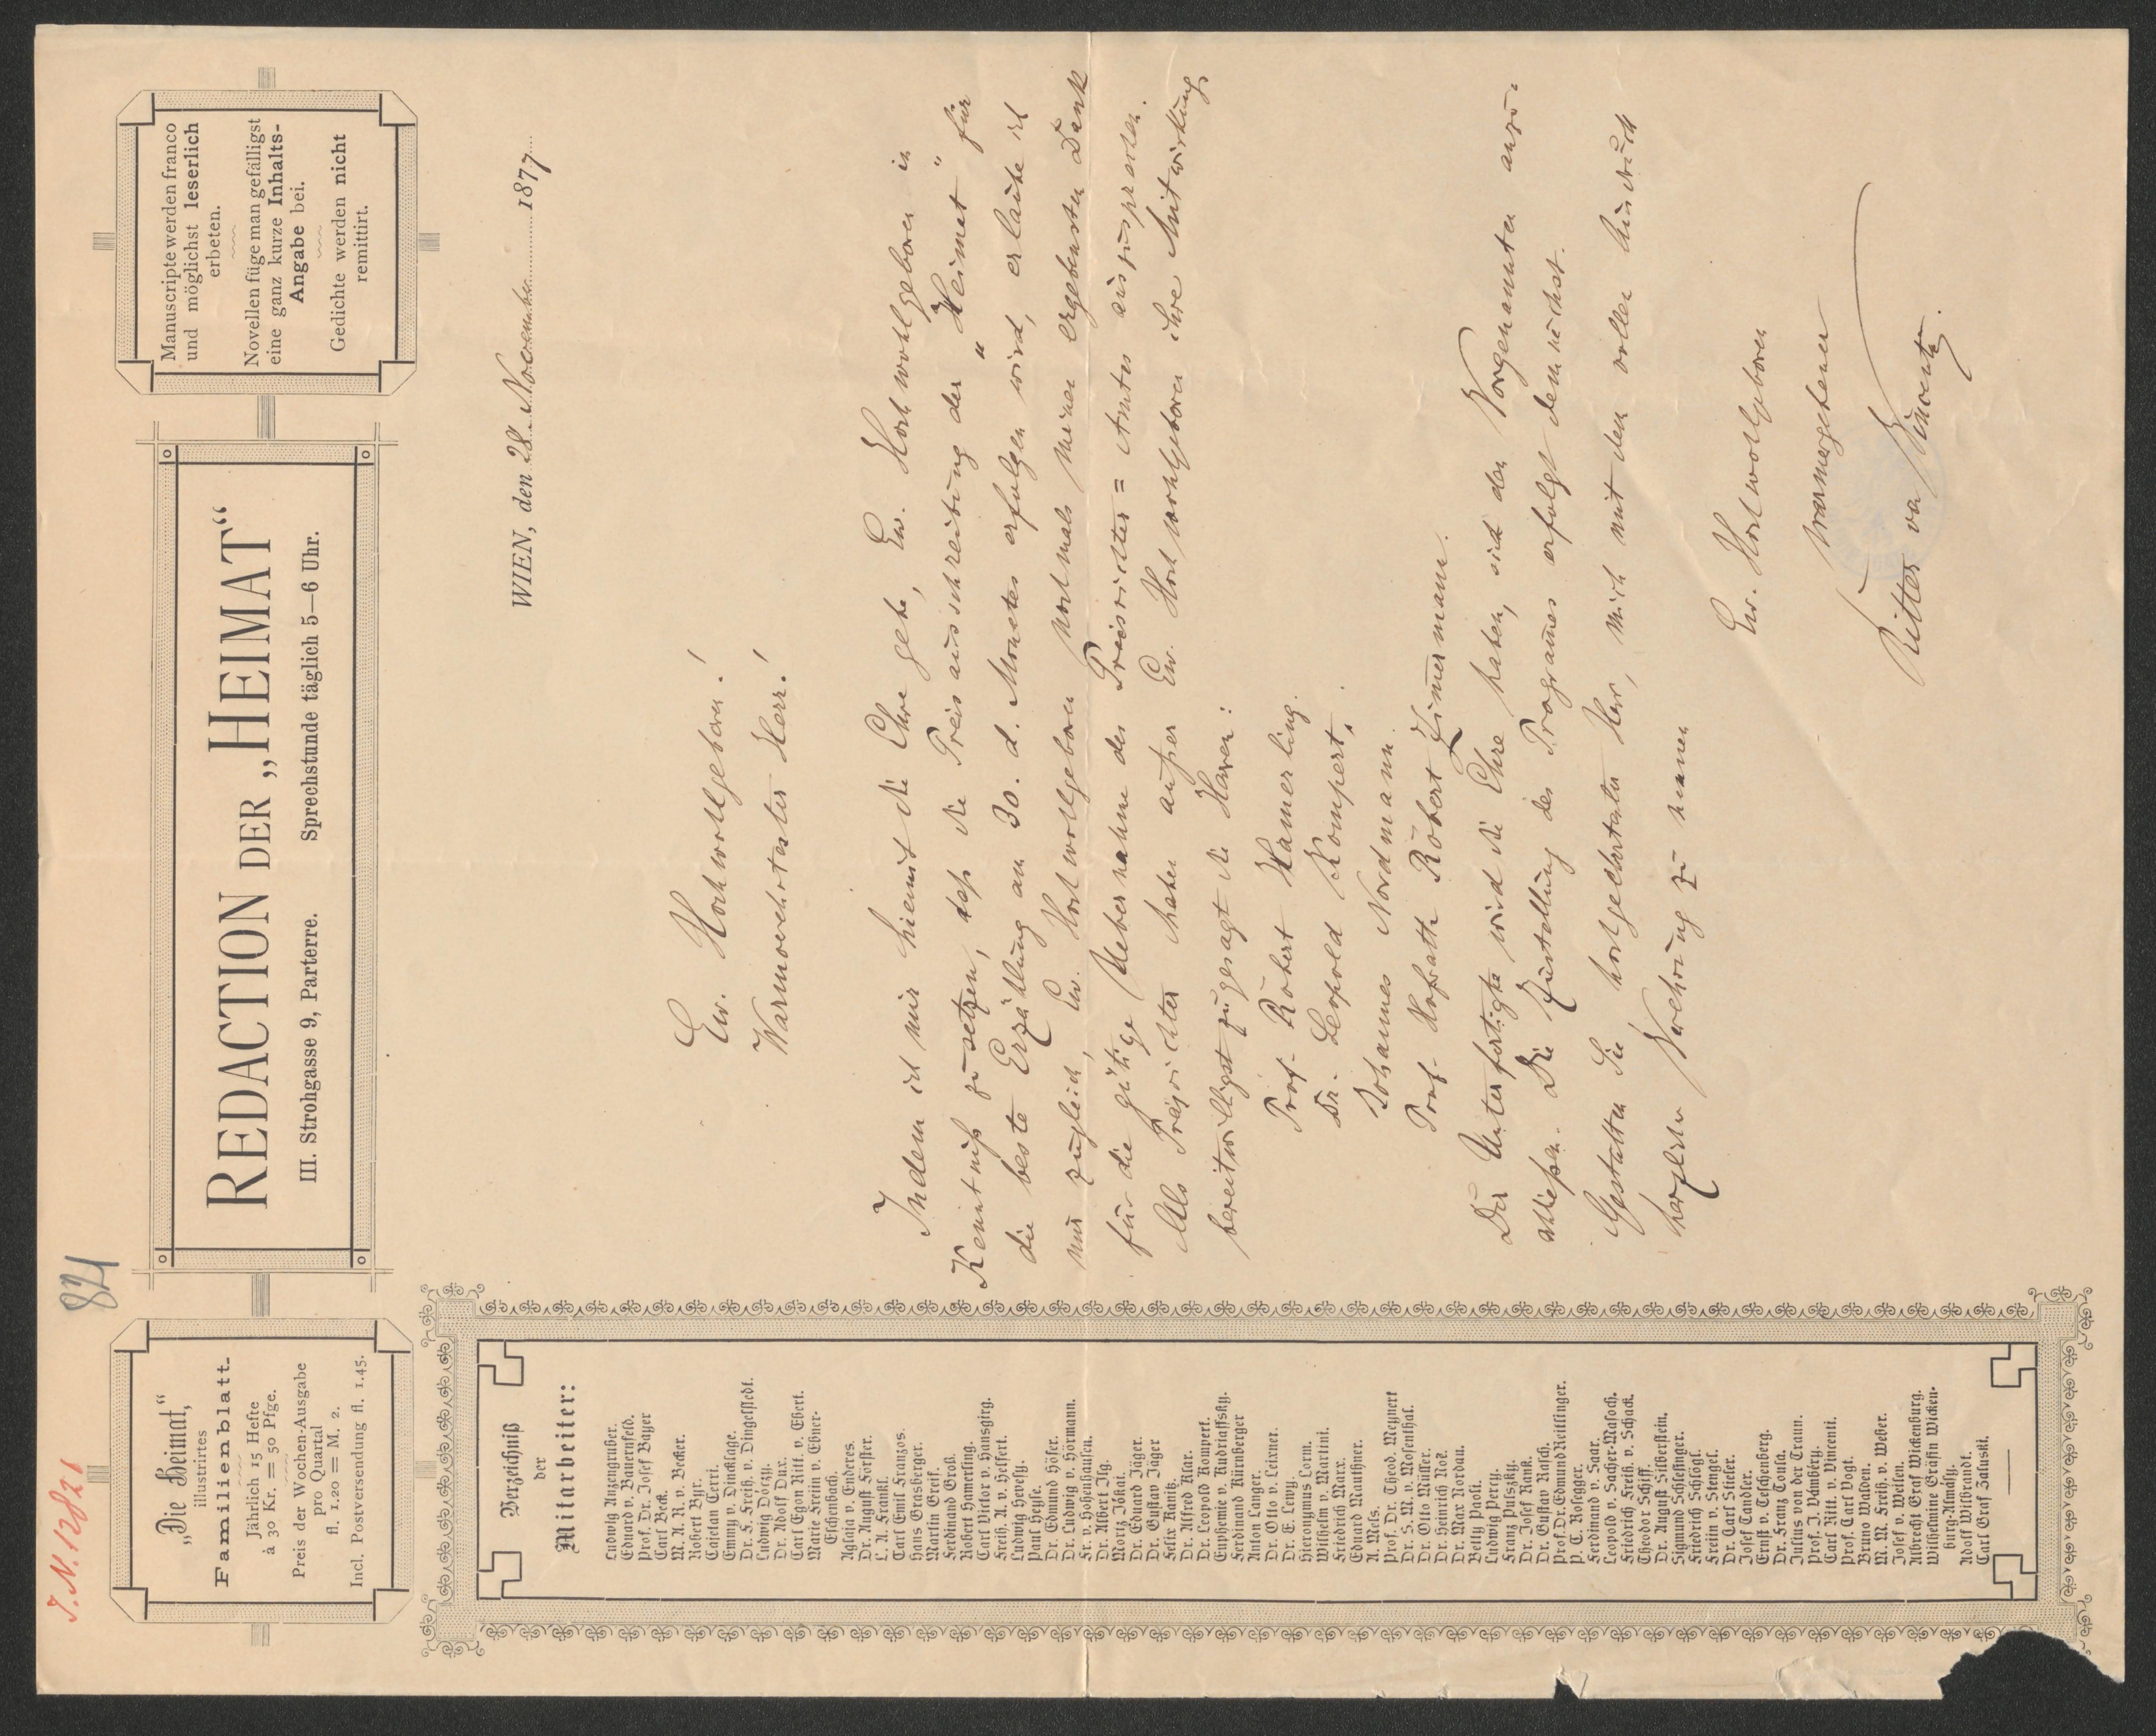 J. N. 12821
821
„Die Heimat,“
illustrirtes
Familienblatt.
Jährlich 15 Hefte
à 30 Kr. = 50 Pfge.
Preis der Wochen-Ausgabe
pro Quartal
fl. 1.20 = M. 2.
Incl. Postversendung fl. 1.45.
REDACTION DER „HEIMAT“
III. Strohgasse 9, Parterre. Sprechstunde täglich 5—6 Uhr.
Manuscripte werden franco
und möglichst leserlich
erbeten.
Novellen füge man gefälligst
eine ganz kurze Inhalts-
Angabe bei.
Gedichte werden nicht
remittirt.
Verzeichniß
der
Mitarbeiter:
Ludwig Anzengruber.
Eduard v. Bauernfeld.
Prof. Dr. Josef Bayer
Carl Beck.
M. A. R. v. Becker.
Robert Byr.
Cajetan Cerri.
Emmy v. Dincklage.
Dr. F. Freih. v. Dingelstedt.
Ludwig Dóczy.
Dr. Adolf Dux.
Carl Egon Ritt. v. Ebert.
Marie Freiin v. Ebner-
Eschenbach.
Aglaja v. Enderes.
Dr. August Förster.
L. A. Frankl.
Carl Emil Franzos.
Hans Grasberger.
Martin Greif.
Ferdinand Groß.
Robert Hamerling.
Carl Victor v. Hansgirg.
Freih. A. v. Helfert.
Ludwig Hevesy.
Paul Heyse.
Dr. Edmund Höfer.
Dr. Ludwig v. Hörmann.
Fr. v. Hohenhausen.
Dr. Albert Ilg.
Moriz Jókai.
Dr. Eduard Jäger.
Dr. Gustav Jäger
Felix Kanitz.
Dr. Alfred Klar.
Dr. Leopold Kompert.
Euphemie v. Kudriaffsky.
Ferdinand Kürnberger
Anton Langer.
Dr. Otto v. Leixner.
Dr. E. Lewy
Hieronymus Lorm.
Wilhelm v. Martini.
Friedrich Marx.
Eduard Mauthner.
A. Mels.
Prof. Dr. Theod. Meynert
Dr. S. M. v. Mosenthal.
Dr. Otto Müller.
Dr. Heinrich Noë.
Dr. Max Nordau.
Betty Paoli.
Ludwig Perry.
Franz Pulszky.
Dr. Josef Rank.
Dr. Gustav Rasch.
Prof. Dr. Edmund Reitlinger.
P. K. Rosegger.
Ferdinand v. Saar.
Leopold v. Sacher-Masoch.
Friedrich Freih. v. Schack.
Theodor Schiff.
Dr. August Silberstein.
Sigmund Schlesinger.
Friedrich Schlögl.
Freiin v. Stengel.
Dr. Carl Stieler.
Josef Tandler.
Ernst v. Teschenberg.
Dr. Franz Toula.
Justus von der Traun.
Prof. J. Vámbéry.
Carl Ritt. v. Vincenti.
Prof. Carl Vogt.
Bruno Walden.
M. M. Freih. v. Weber.
Josef v. Weilen.
Albrecht Graf Wickenburg.
Wilhelmine Gräfin Wicken-
burg-Almásy.
Adolf Wilbrandt.
Carl Graf Zaluski.
WIEN, den 28. November 1877
Ew. Hochwohlgeboren!
Warmverehrtester Herr!
Indem ich mir hiemit die Ehre gebe, Ew. Hochwohlgeboren in
Kenntniß zu setzen, daß die Preisausschreibung der „Heimat“ für
die beste Erzählung am 30. d. Monates erfolgen wird, erlaube ich
mir zugleich, Ew. Hochwohlgeboren nochmals meinen ergebensten Dank
für die gütige Uebernahme des Preisrichter=Amtes auszusprechen.
Als Preisrichter haben außer Ew. Hochwohlgeboren ihre Mitwirkung
bereitwilligst zugesagt die Herren:
Prof. Robert Hamerling.
Dr. Leopold Kompert.
Johannes Nordmann.
Prof. Hofrath Robert Zimmermann.
Der Unterfertigte wird die Ehre haben, sich den Vorgenannten anzu-
schließen. Die Zustellung des Programes erfolgt demnächst.
Gestatten Sie hochgeehrtester Herr, mich mit dem vollen Ausdruck
herzlichster Verehrung zu nennen
Ew. Hochwohlgeboren
warmergebener
Ritter von Vincenti.